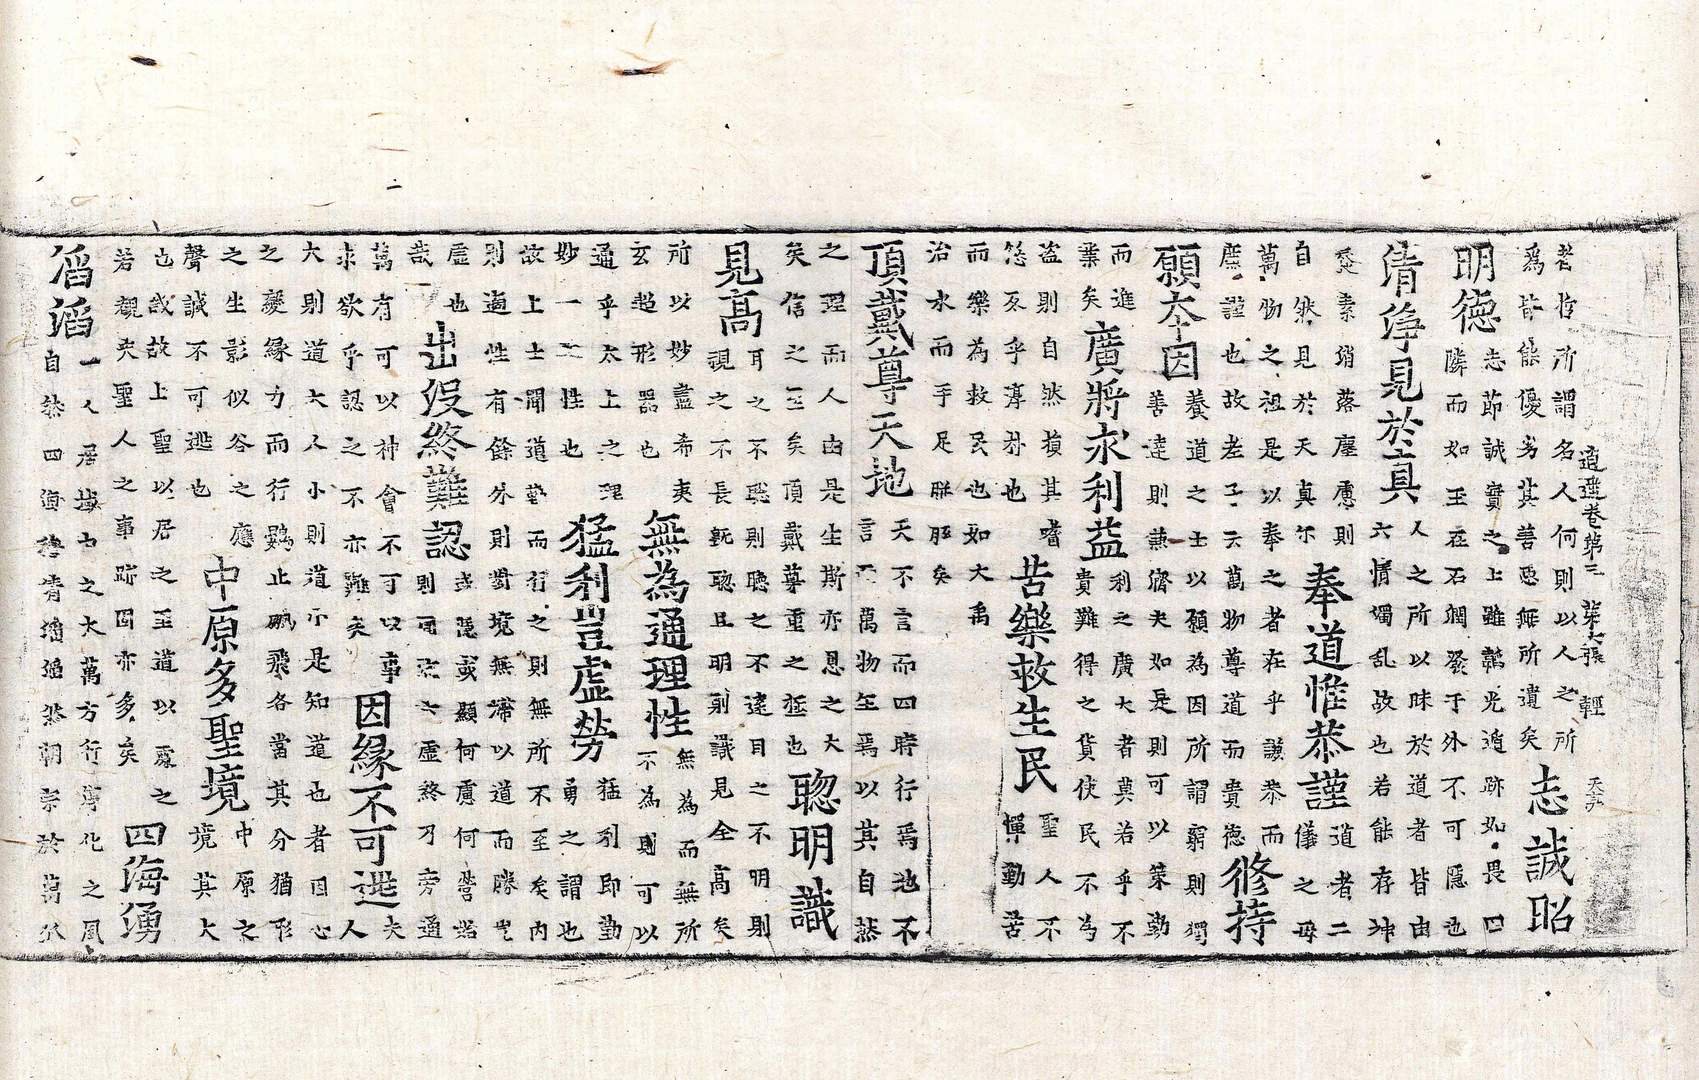 逍遥卷第三 苐七張 輕
者哲所謂名人何則以人之所
爲皆能優劣其善惡無所遺矣
志誠昭
明德
志節誠實之上雖韜光遁跡如畏四
隣而如玉在石澗發于外不可隱也
清淨見於真
人之所以昧於道者皆由
六情燭乱故也若能存神
養素消落塵慮則
自然見於天真尓
奉道惟恭謹
道者二
儀之毋
萬物之祖是以奉之者在乎謙恭而
廉謹也故老子云萬物尊道而貴德
修持
願本因
養道之士以願為因所謂窮則獨
善達則兼濟夫如是則可以策勤
而進
業矣
廣將求利益
利之廣大者莫若乎不
貴難得之貨使民不為
盗則自然損其嗜
慾反乎淳朴也
苦樂救生民
聖人不
憚勤苦
而樂為救民也如大禹
治水而手足胼胝矣
頂戴尊天地
天不言而四時行焉地不
言而萬物生焉以其自然
之理而人由是生斯亦恩之大
矣信之至矣頂戴尊重之極也
聦明識
見高
耳之不聦則聴之不遠目之不明則
視之不長既聦且明則識見全高矣
所以妙盡希夷
玄超形器也
無為通理性
無為而無所
不為則可以
通乎太上之理
妙一性也
猛利豈虛勞
猛利即勤
勇之謂也
故上士聞道勤而行之則無所不至矣内
則適性有餘外則對境無滯以道而勝豈
虛也
哉
出没終難認
或隱或顯何慮何營
則同六虛然乃旁通
萬有可以神會不可以事
求欲乎認之不亦難矣
因緣不可逃
夫
人
大則道大人小則道小是知道也者因心
之變緣力而行鷃止鵬飛各當其分猶形
之生影似谷之應
聲誠不可逃也
中原多聖境
中原之
境其大
也哉故上聖以居之至道以處之
若觀夫聖人之事跡固亦多矣
四海湧
滔滔
一人居域中之大萬方行淳化之風
自然四海穆清滔滔然朝宗於萬